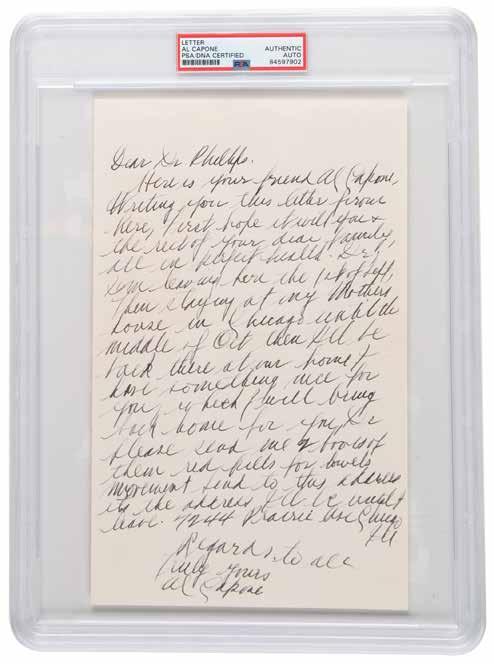 LETTER
AL CAPONE
PSA/DNA CERTIFIED
AUTHENTIC
AUTO
PSA
84597902
Dear Dr Phillips.
Here is your friend Al Capone,
Writing you this letter from
here, first hope it will you &
the rest of your dear family,
all in perfect health. Dr,
I'm leaving here the 1st of Sept,
then staying at my Mothers
house in Chicago until the
middle of Oct then I'll be
back there at our home &
have something nice for
you, which I will bring
back home for you Dr
please send me 2 boxes of
them red pills for bowels
movement send to this address
its the address I'll be until I
leave. 7244 Prairie Ave Chicago
Ill
Regards to all
Truly Yours
Al Capone